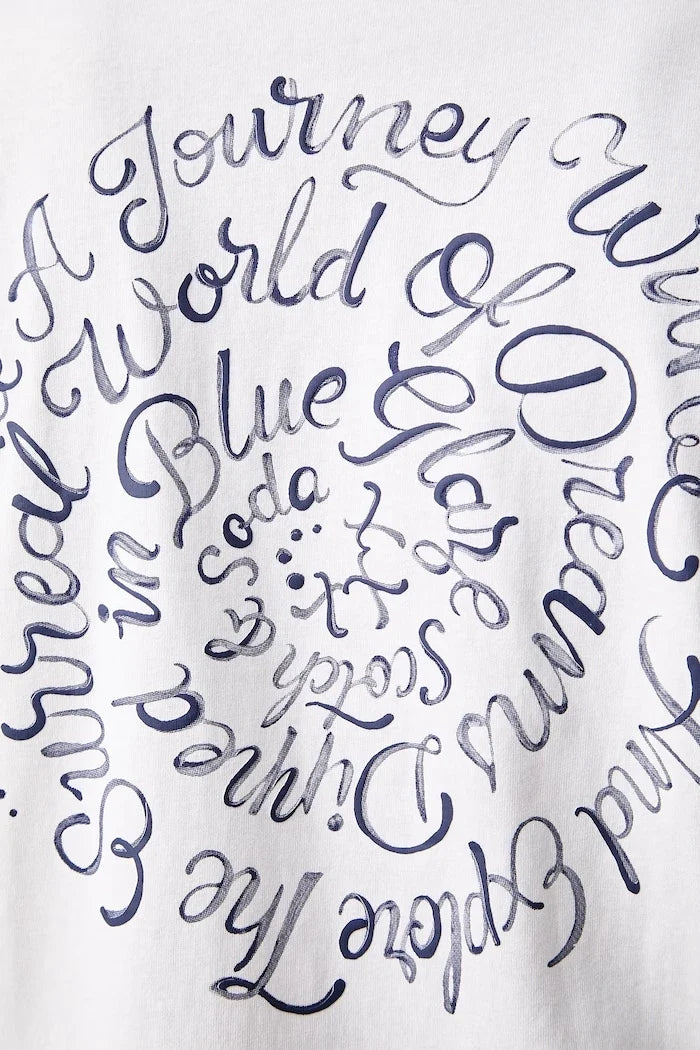 A Journey
And Explore The
Surreal World Of Dreams
Dipped in Blue Glaze
Scotch & Soda